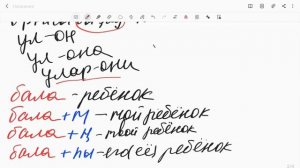 ул-он
ул-она
улар-они
бала - ребёнок
бала + м - мой ребёнок
бала + ң - твой ребёнок
бала + һы - его (её) ребёнок